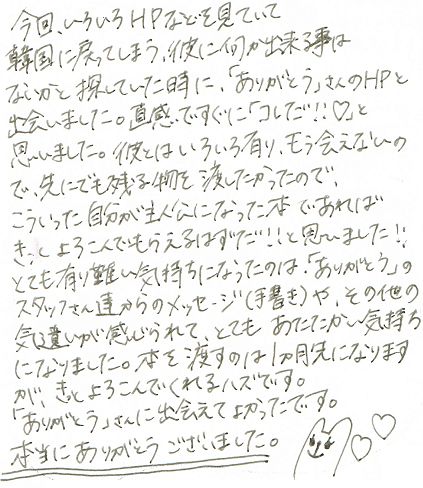 今回、いろいろHPなどを見ていて
韓国に戻ってしまう、彼に何か出来る事は
ないかと探していた時に、「ありがとう」さんのHPと
出会いました。直感ですぐに「コレだ!!♡」と
思いました。彼とはいろいろ有り、もう会えないの
で、先にでも残る物を渡したかったので、
こういった自分が主人公になった本であれば
きっとよろこんでもらえるはずだ!!と思いました!!
とても有り難い気持ちになったのは、「ありがとう」の
スタッフさん達からのメッセージ(手書き)や、その他の
気遣いが感じられて、とてもあたたかい気持ち
になりました。本を渡すのは1ヵ月先になります
が、きっとよろこんでくれるハズです。
「ありがとう」さんに出会えてよかったです。
本当にありがとうございました。